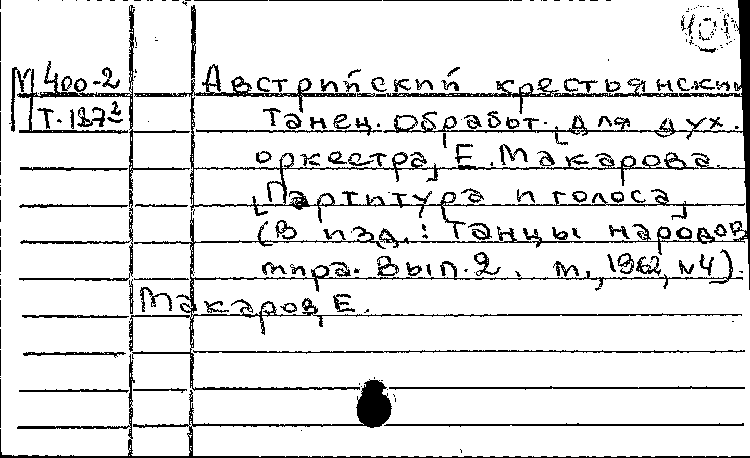 101
М 400-2
Т-187²
Австрийский крестьянский
танец. Обработ. [для дух.
оркестра] Е. Макарова.
[Партитура и голоса]
(В изд.: Танцы народов
мира. Вып. 2. М., 1962, №4).
Макаров, Е.